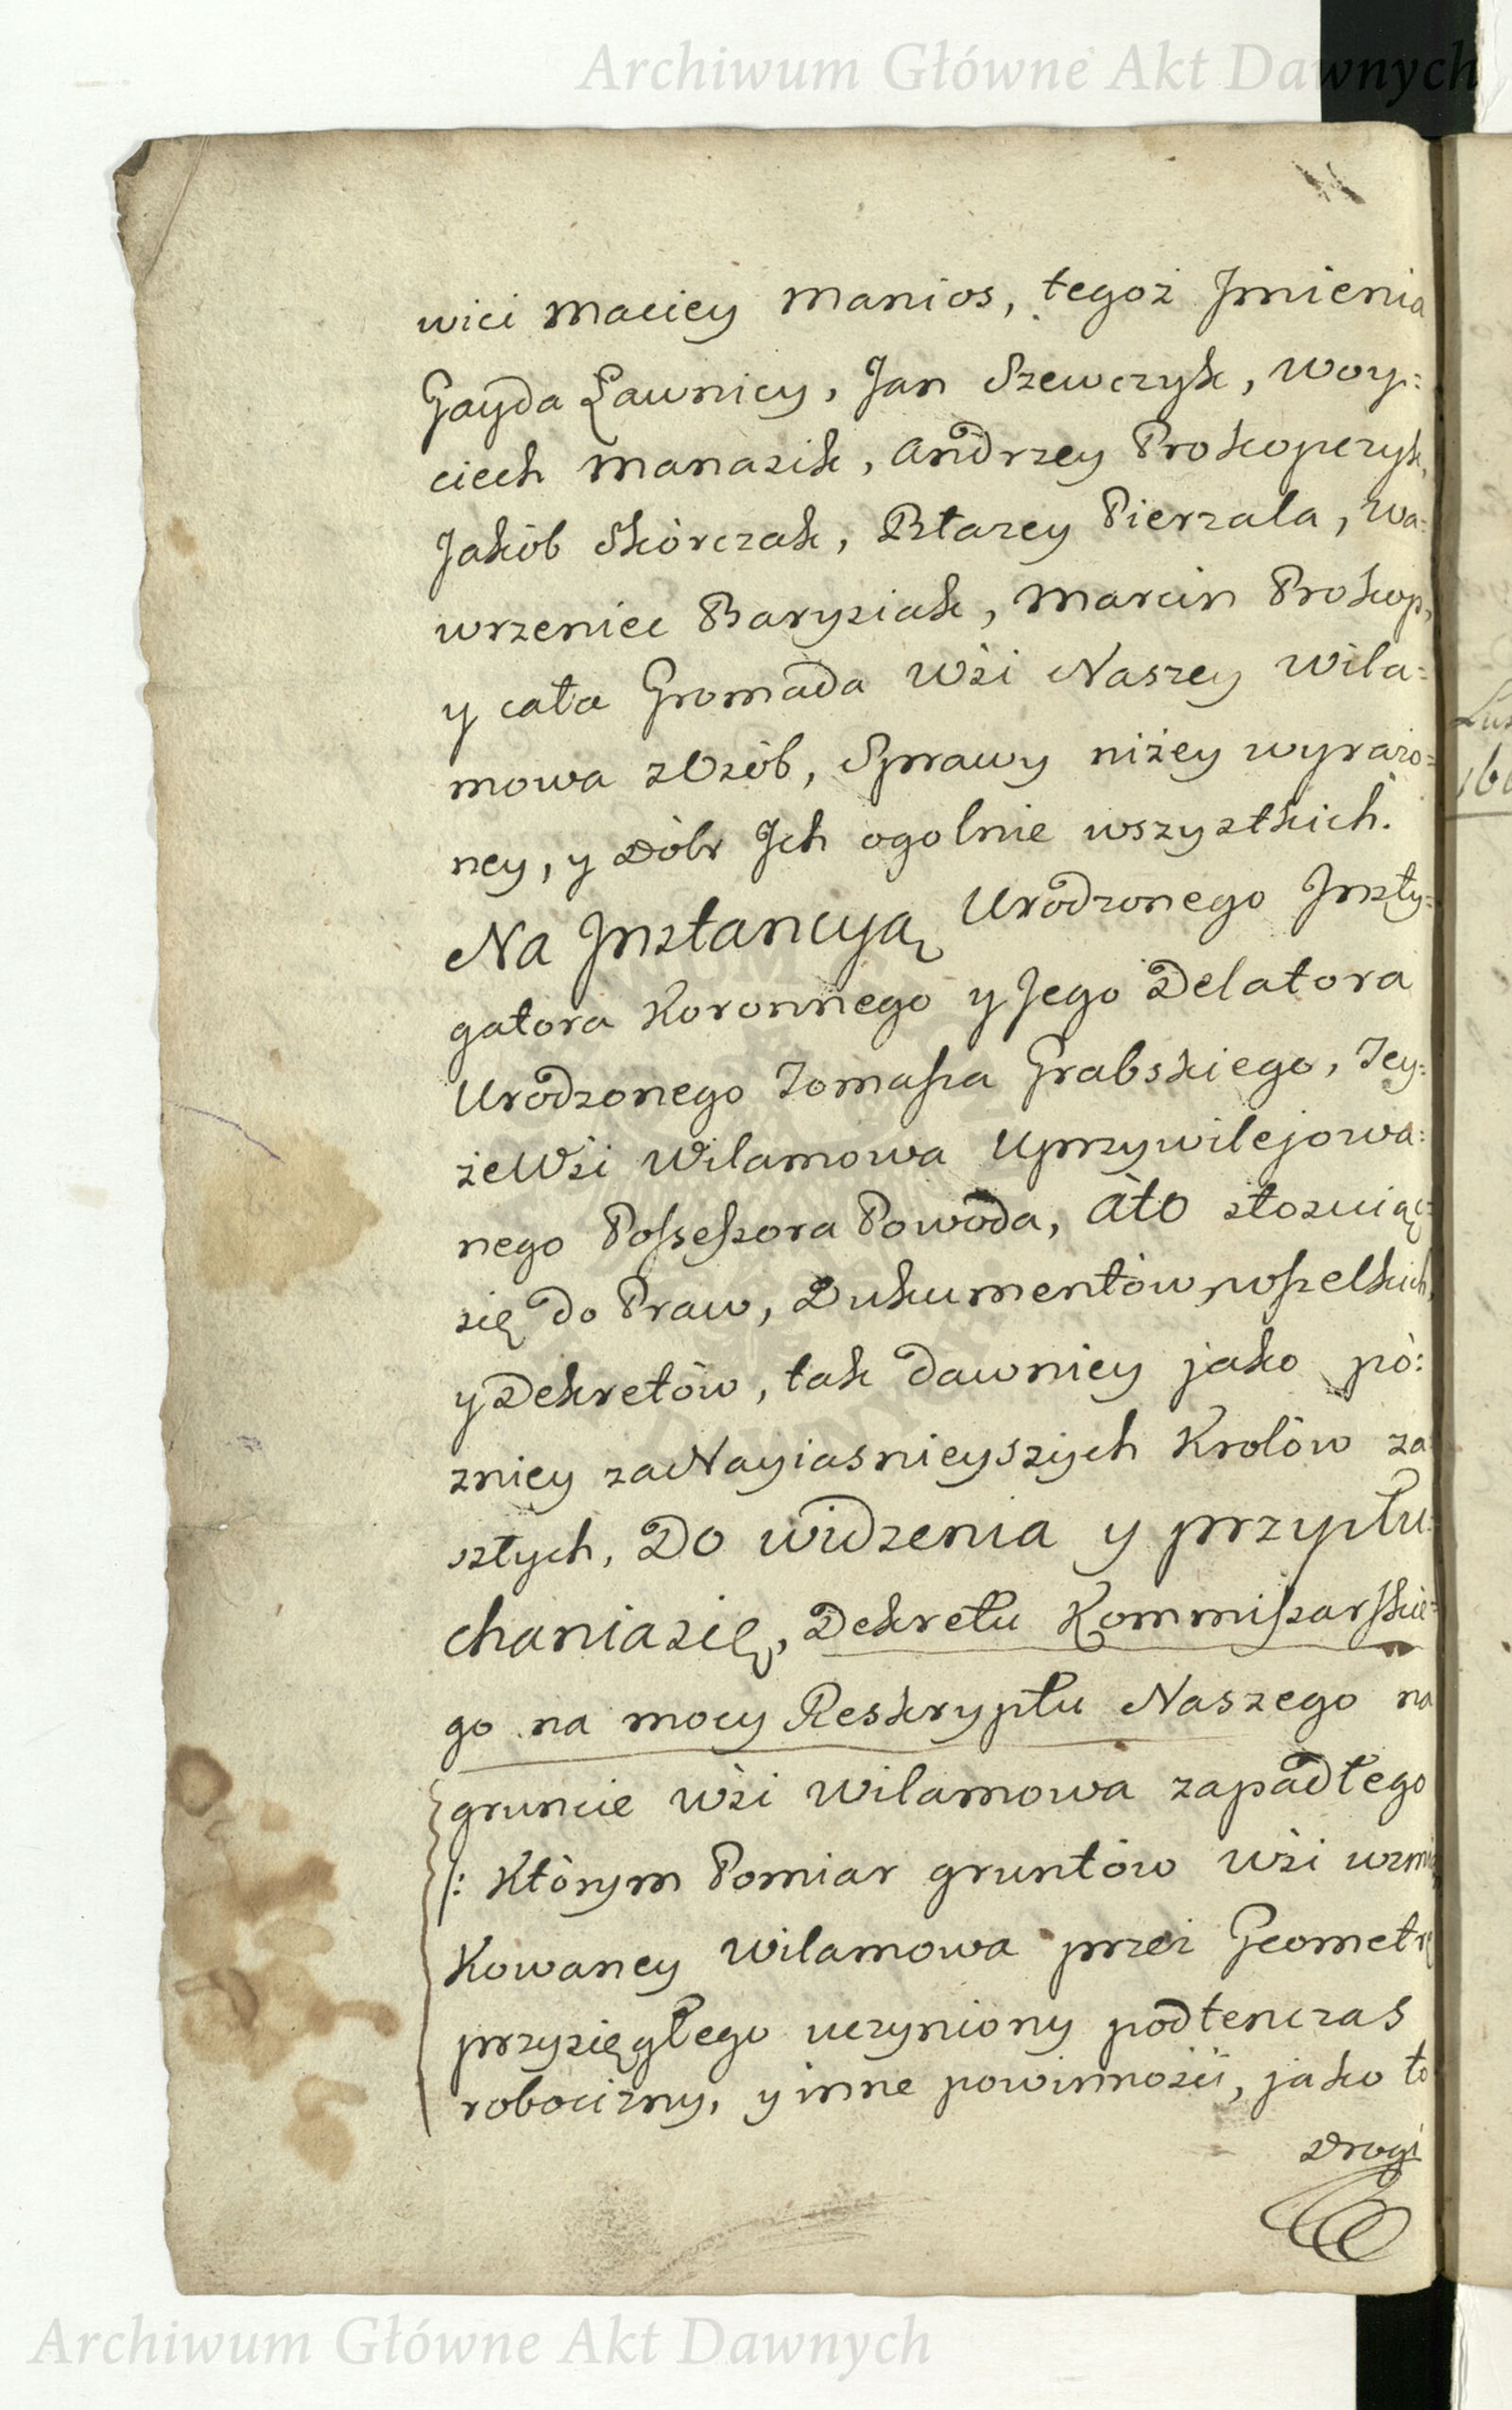 Archiwum Główne Akt Dawnych
wici Maciey Manios, tegoż Jmienia
Gayda Ławnicy, Jan Szewczyk, Woy=
ciech Manasik, Andrzey Prokopczyk,
Jakób Skórczak, Błazey Pierzala, Wa=
wrzeniec Barysiak, Marcin Prokop,
y cała Gromada Wśi Naszey Wila=
mowa z Osób, Sprawy niżey wyrażo=
ney, y Dóbr Jch ogolnie wszystkich.
Na Jnstancyą Urodzonego Jnsty=
gatora Koronnego y Jego Delatora
Urodzonego Tomasza Grabskiego, Tey=
że Wśi Wilamowa Uprzywilejowa=
nego Possessora Powoda, Ato stosuiąc
się do Praw, Dukumentów wszelkich,
y Dekretów, tak dawniey jako pó=
zniey za Nayiasnieyszych Krolów za
szłych, Do widzenia y przysłu=
chania się, Dekretu Kommissarskie=
go na mocy Reskryptu Naszego na
gruncie Wśi Wilamowa zapadłego
/: Którym Pomiar gruntów Wśi wzmian
kowaney Wilamowa przez Geometrę
przysięgłego uczyniony podtenczas
robocizny, y inne powinności, jako to
Drogi
Archiwum Główne Akt Dawnych